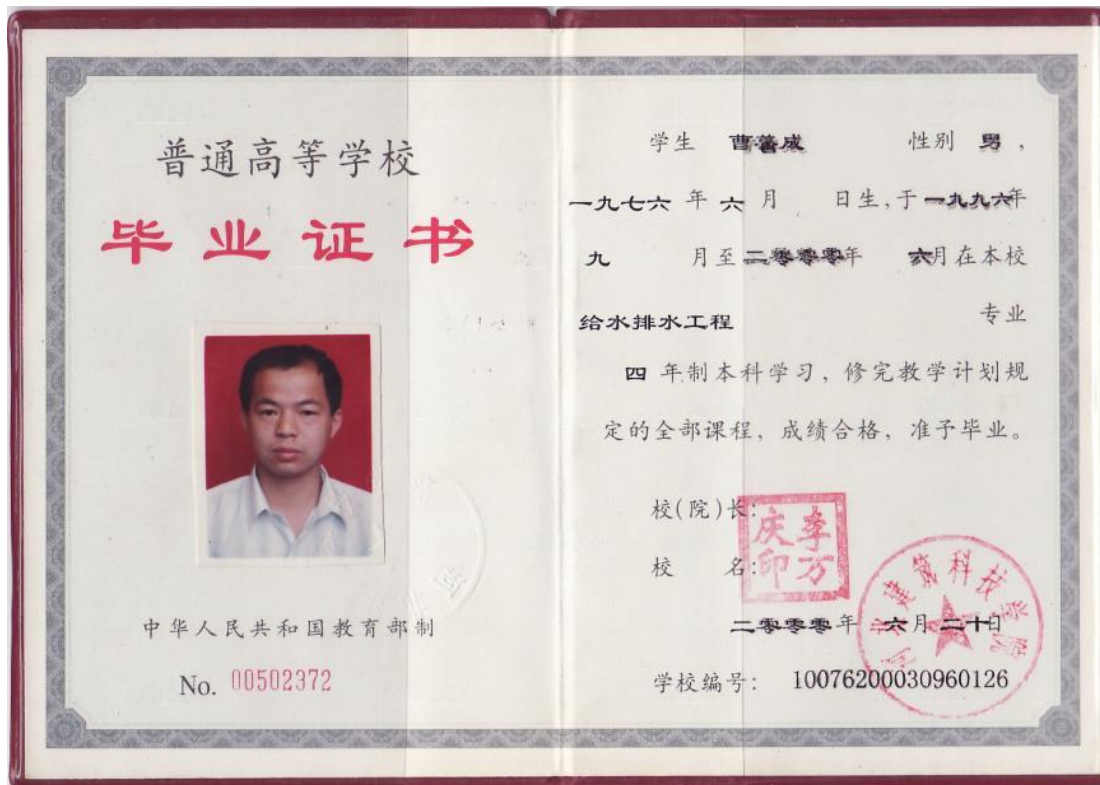 普通高等学校
毕业证书
中华人民共和国教育部制
No. 00502372
学生 曹蕃成 性别 男,
一九七六年六月 日生,于一九九六年
九 月至二零零零年 六月在本校
给水排水工程 专业
四年制本科学习, 修完教学计划规
定的全部课程, 成绩合格, 准予毕业。
校(院)长:
李万庆印
校 名:
河北建筑科技学院
二零零零年 六月二十日
学校编号: 10076200030960126